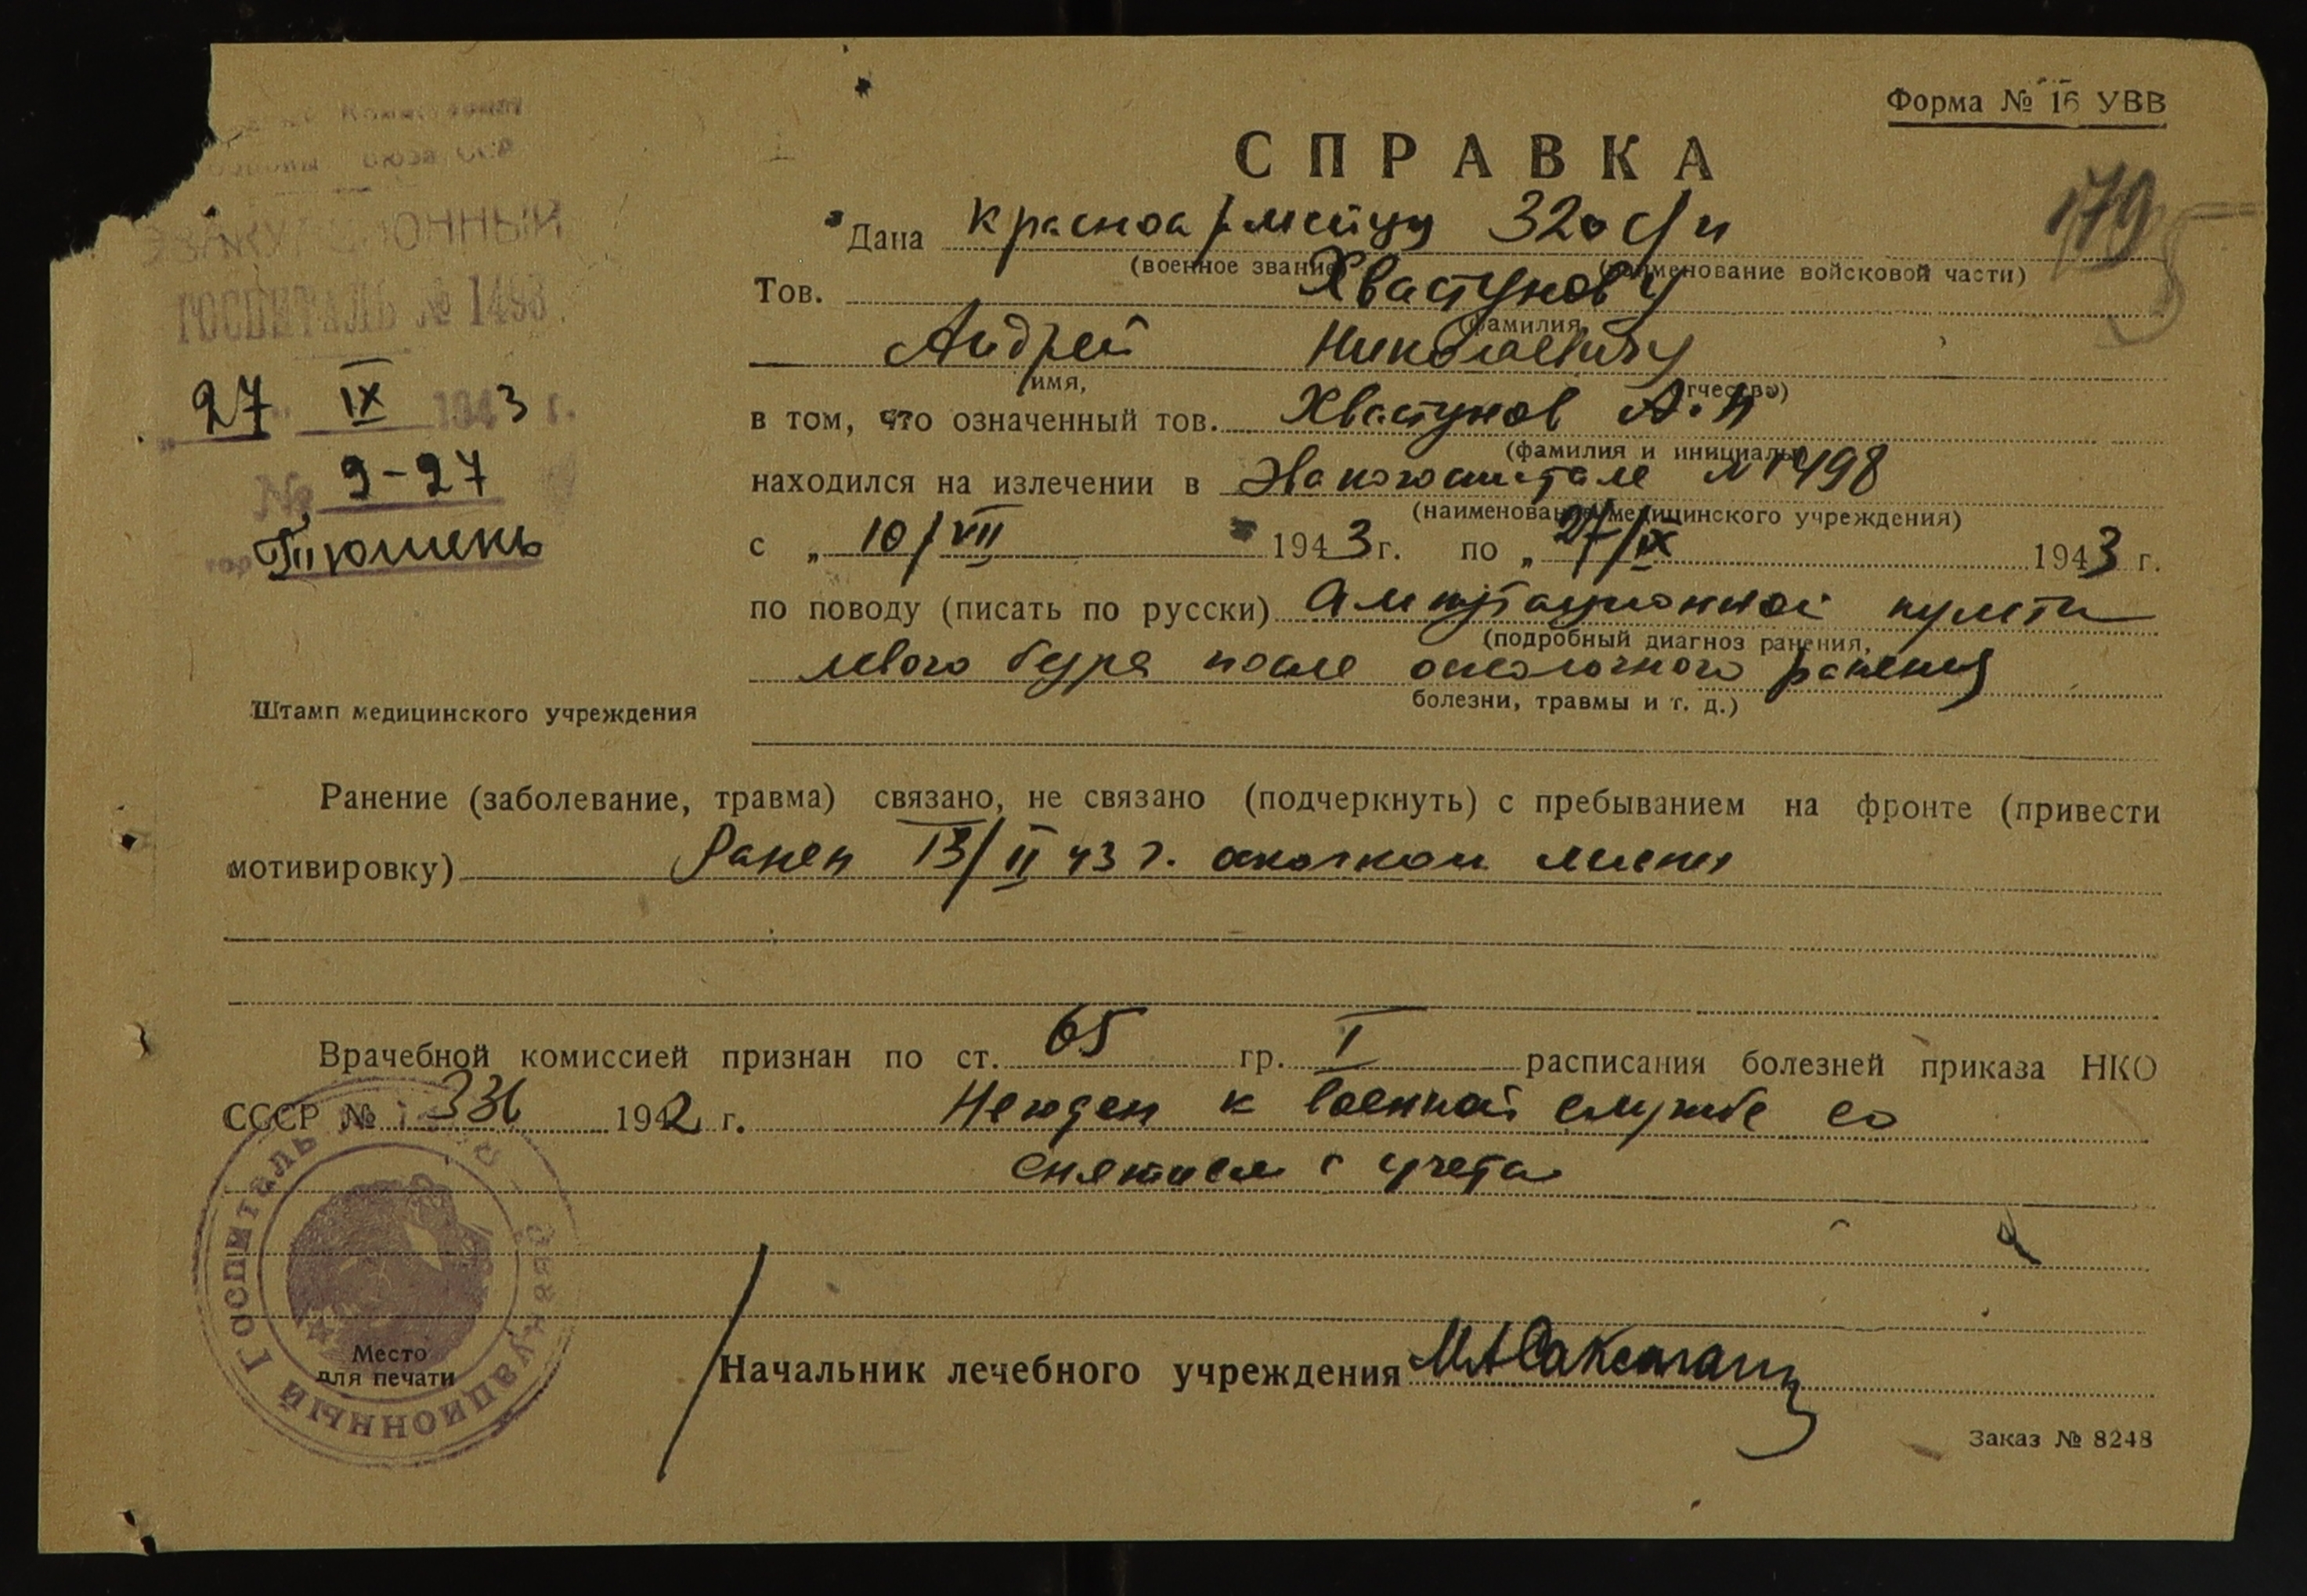 Форма № 16 УВВ
СПРАВКА
179
ЭВАКУАЦИОННЫЙ
ГОСПИТАЛЬ № 1498
„27" IX 1943 г.
№ 9-27
гор. Тюмень
Штамп медицинского учреждения
Дана красноармейцу 320 с/п
(военное звание) (наименование войсковой части)
Тов. Хвастунову
фамилия,
Андрей Николаевичу
имя, отчество)
в том, что означенный тов. Хвастунов А.Н
(фамилия и инициалы)
находился на излечении в Эвакогоспитале № 1498
(наименование медицинского учреждения)
с „ 10/VII 1943 г. по „ 27/IX 1943 г.
по поводу (писать по русски) Ампутационной культи
(подробный диагноз ранения,
левого бедра после осколочного ранения
болезни, травмы и т. д.)
Ранение (заболевание, травма) связано, не связано (подчеркнуть) с пребыванием на фронте (привести
мотивировку) Ранен 13/II 43 г. осколком мины
Врачебной комиссией признан по ст. 65 гр. I расписания болезней приказа НКО
СССР № 336 1942 г. Негоден к военной службе со
снятием с учета
Эвакуационный Госпиталь №
Место
для печати
Начальник лечебного учреждения
Заказ № 8248